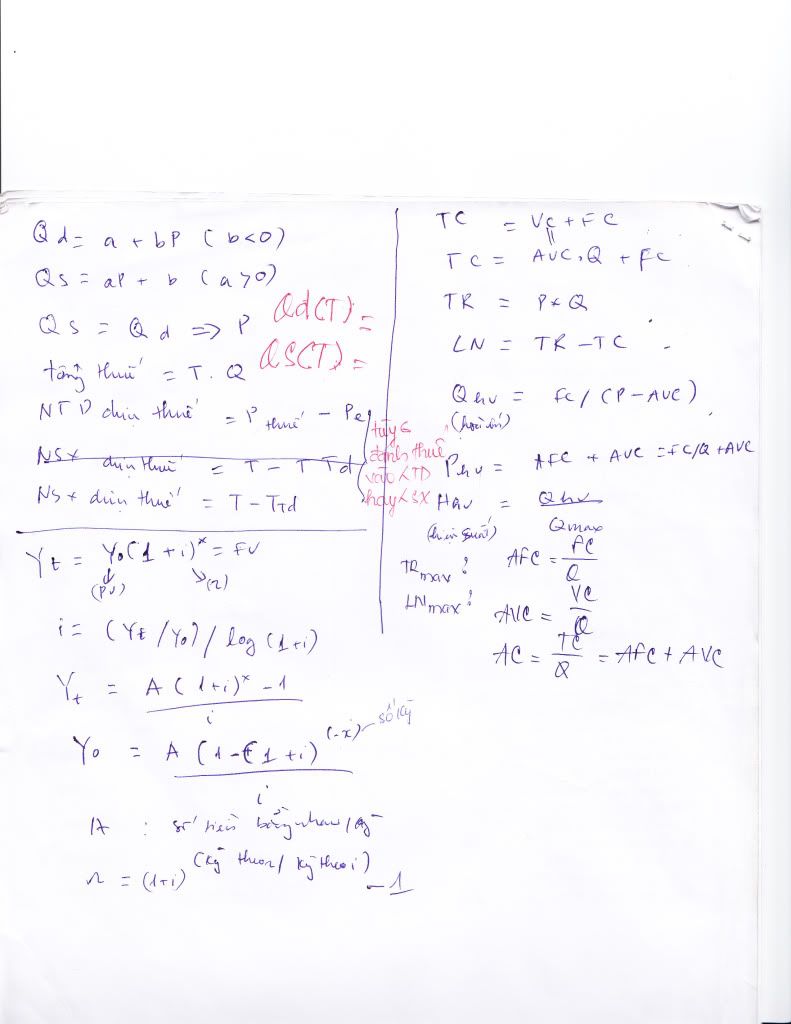 Qd = a + bP (b<0)
Qs = aP + b (a>0)
Qs = Qd => P
Qd(T) =
QS(T) =
tổng thuế = T. Q
NTD chịu thuế = P thuế - Pe
NSX chịu thuế = T - T Td
NSX chịu thuế = T - TTd
tùy
đánh thuế
vào TD
hay SX
Yt = Yo(1 + i)^x = FV
(PV)
(n)
i = (Yt/Yo) / log(1+i)
Yt = A(1+i)^x - 1
i
Yo = A(1-(1+i)^(-x)
số kỳ
i
A : số tiền bằng nhau/kỳ
r = (1+i)^(kỳ theo r/kỳ theo i) - 1
TC = VC + FC
TC = AVC.Q + FC
TR = P*Q
LN = TR - TC
Qhv = FC/(P-AVC)
(hoà vốn)
Phv = AFC + AVC = FC/Q + AVC
Hhv = Qhv
Qmax
(hiệu suất)
TRmax?
LNmax?
AFC = FC
Q
AVC = VC
Q
AC = TC/Q = AFC + AVC